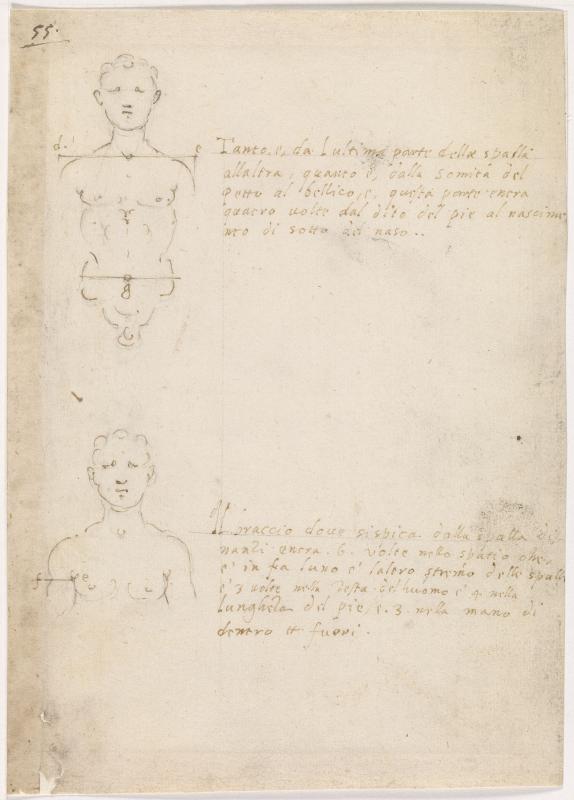 55.
d. e
Tanto, e, da lultima parte della spalla
allaltra, quanto e, dalla somita del
petto al bellico, e, questa parte entra
quatro volte dal dito del pie al nascime
nto di sotto del naso..
g
Il braccio dove sispica dalla spalla di
nanzi entra. 6. volte nello spatio che,
e' in fra luno e' laltro stremo delle spalle
e' 3 volte nella testa del huomo e' 4 nella
lunghela del pie, e. 3. nella mano di
dentro et fuori.
f e